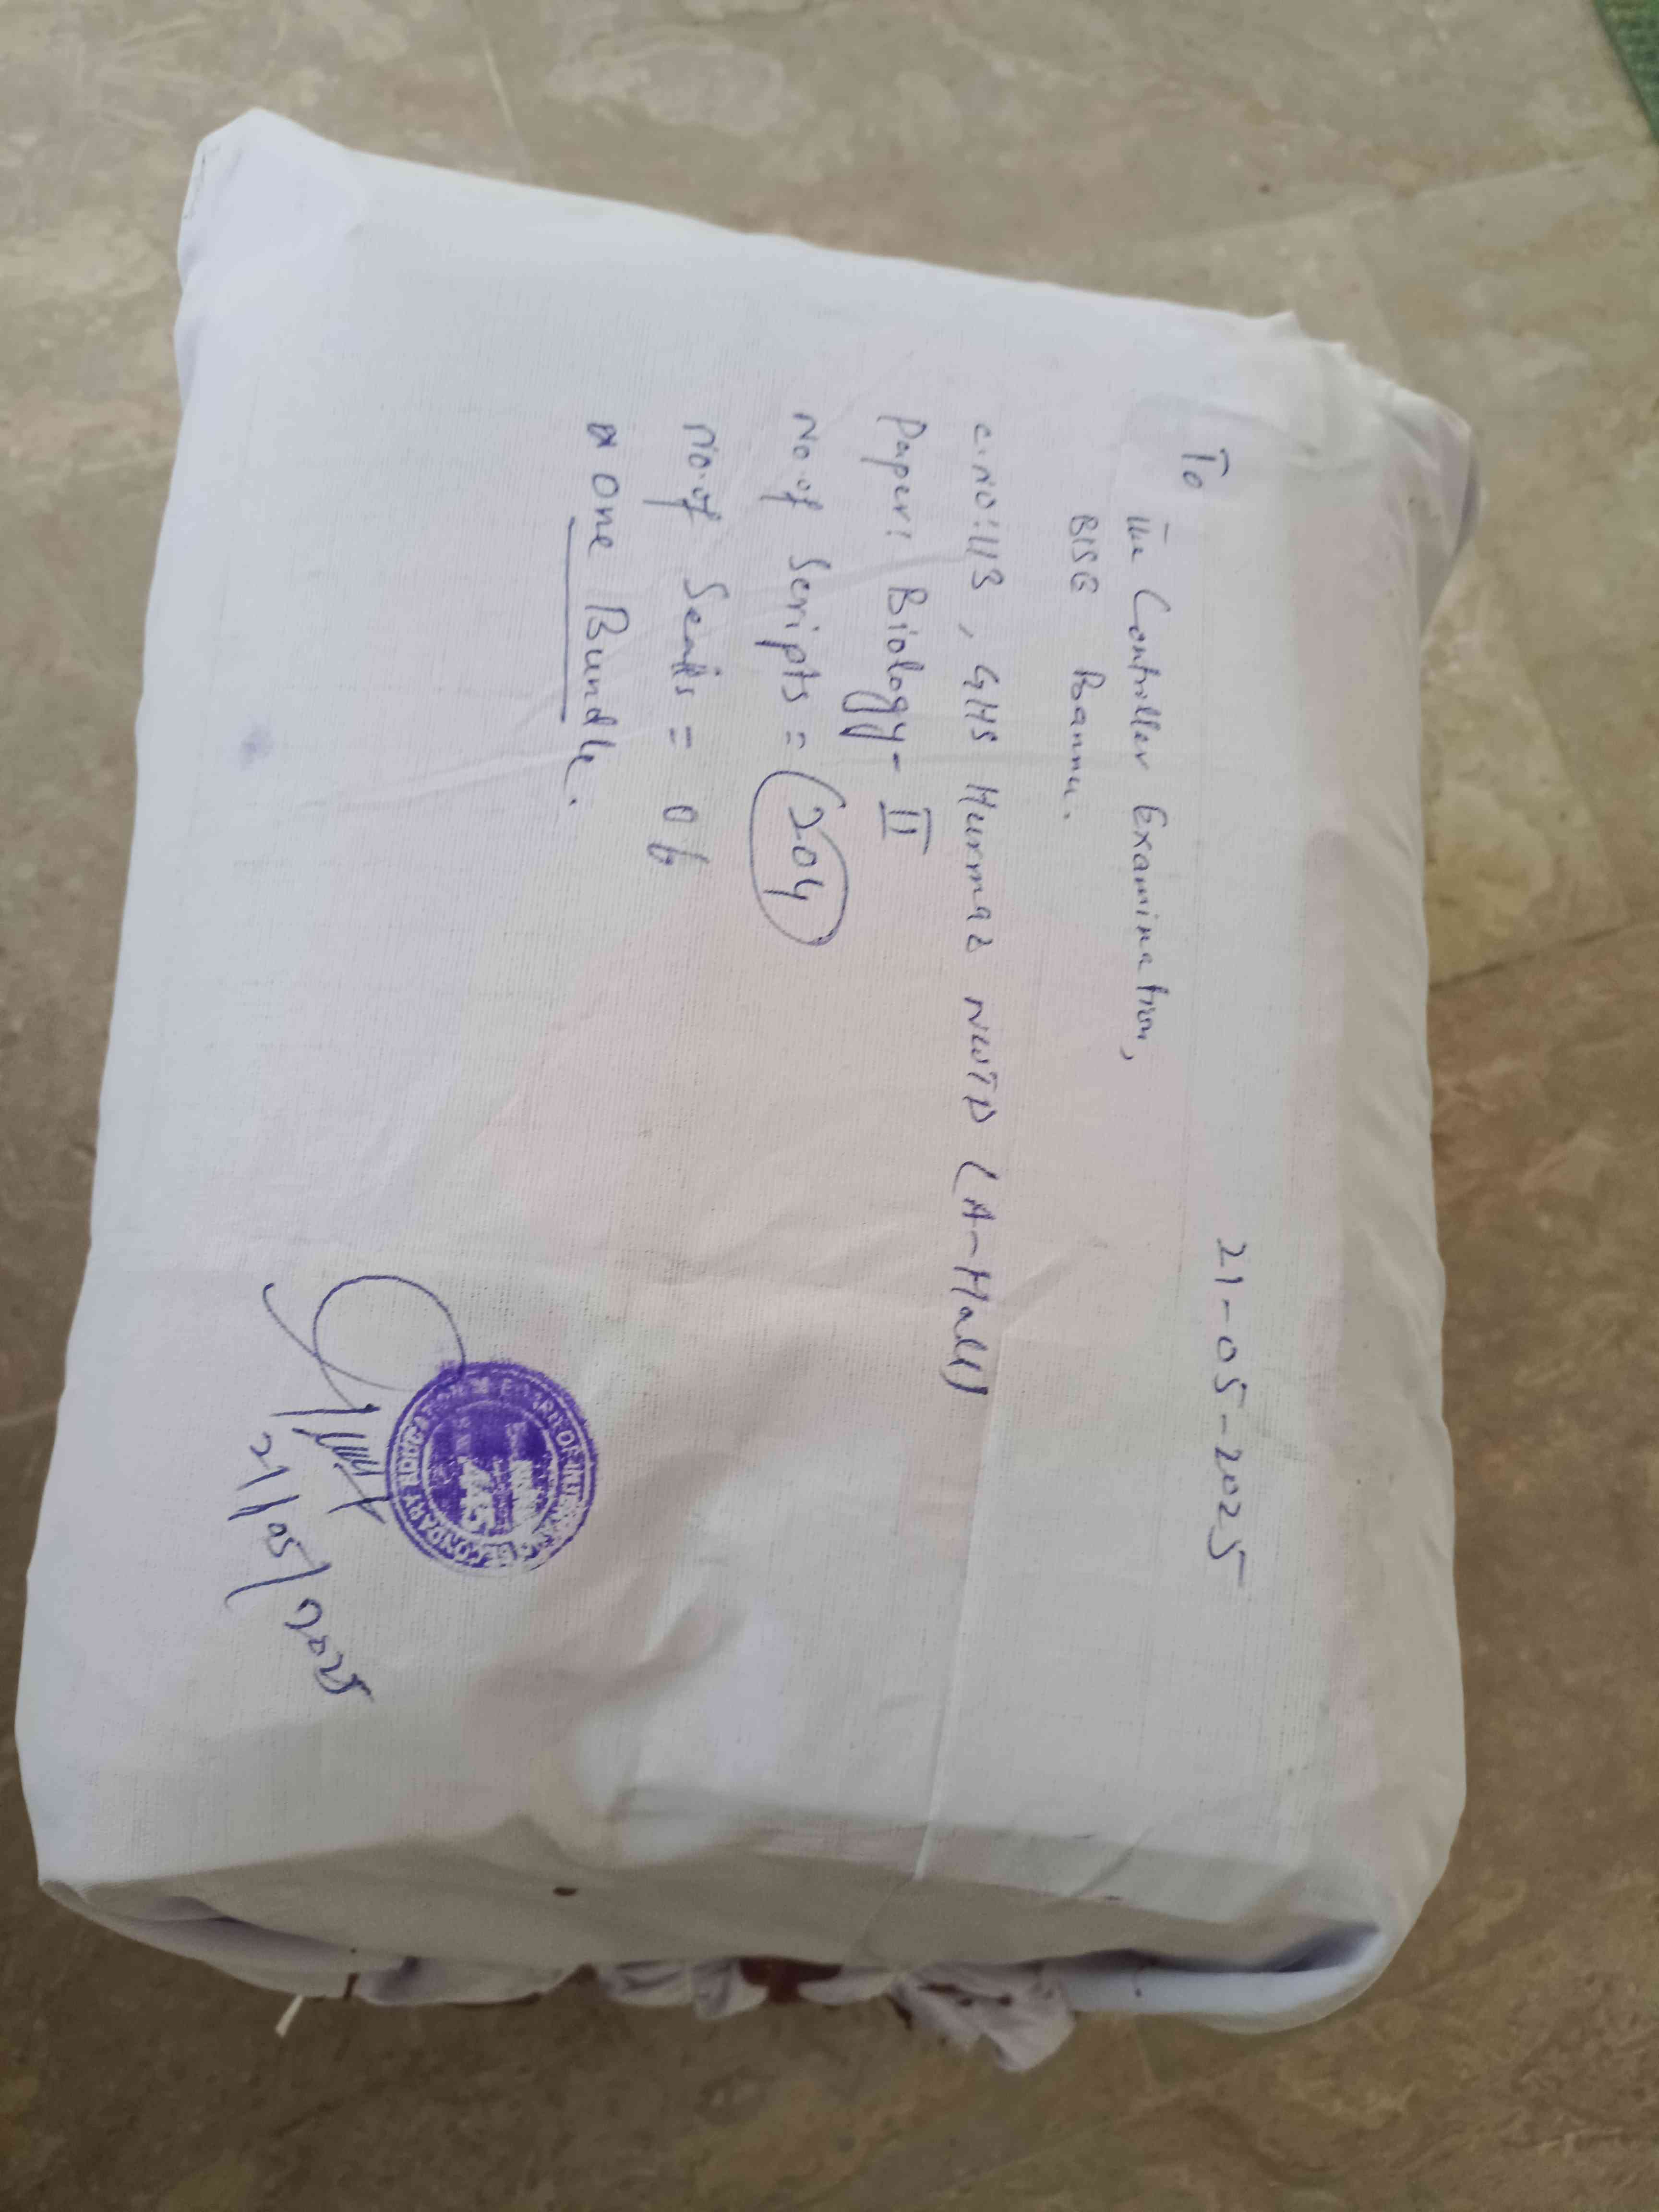 21-05-2025
To
The Controller Examination,
BISE Bannu.
C.No:113, GHS Hurmaz NWTD (A-Hall)
Paper: Biology-II
No.of Scripts = 204
No.of Seals = 06
one Bundle.
BOARD OF INTERMEDIATE & SECONDARY EDUCATION
21/05/2025